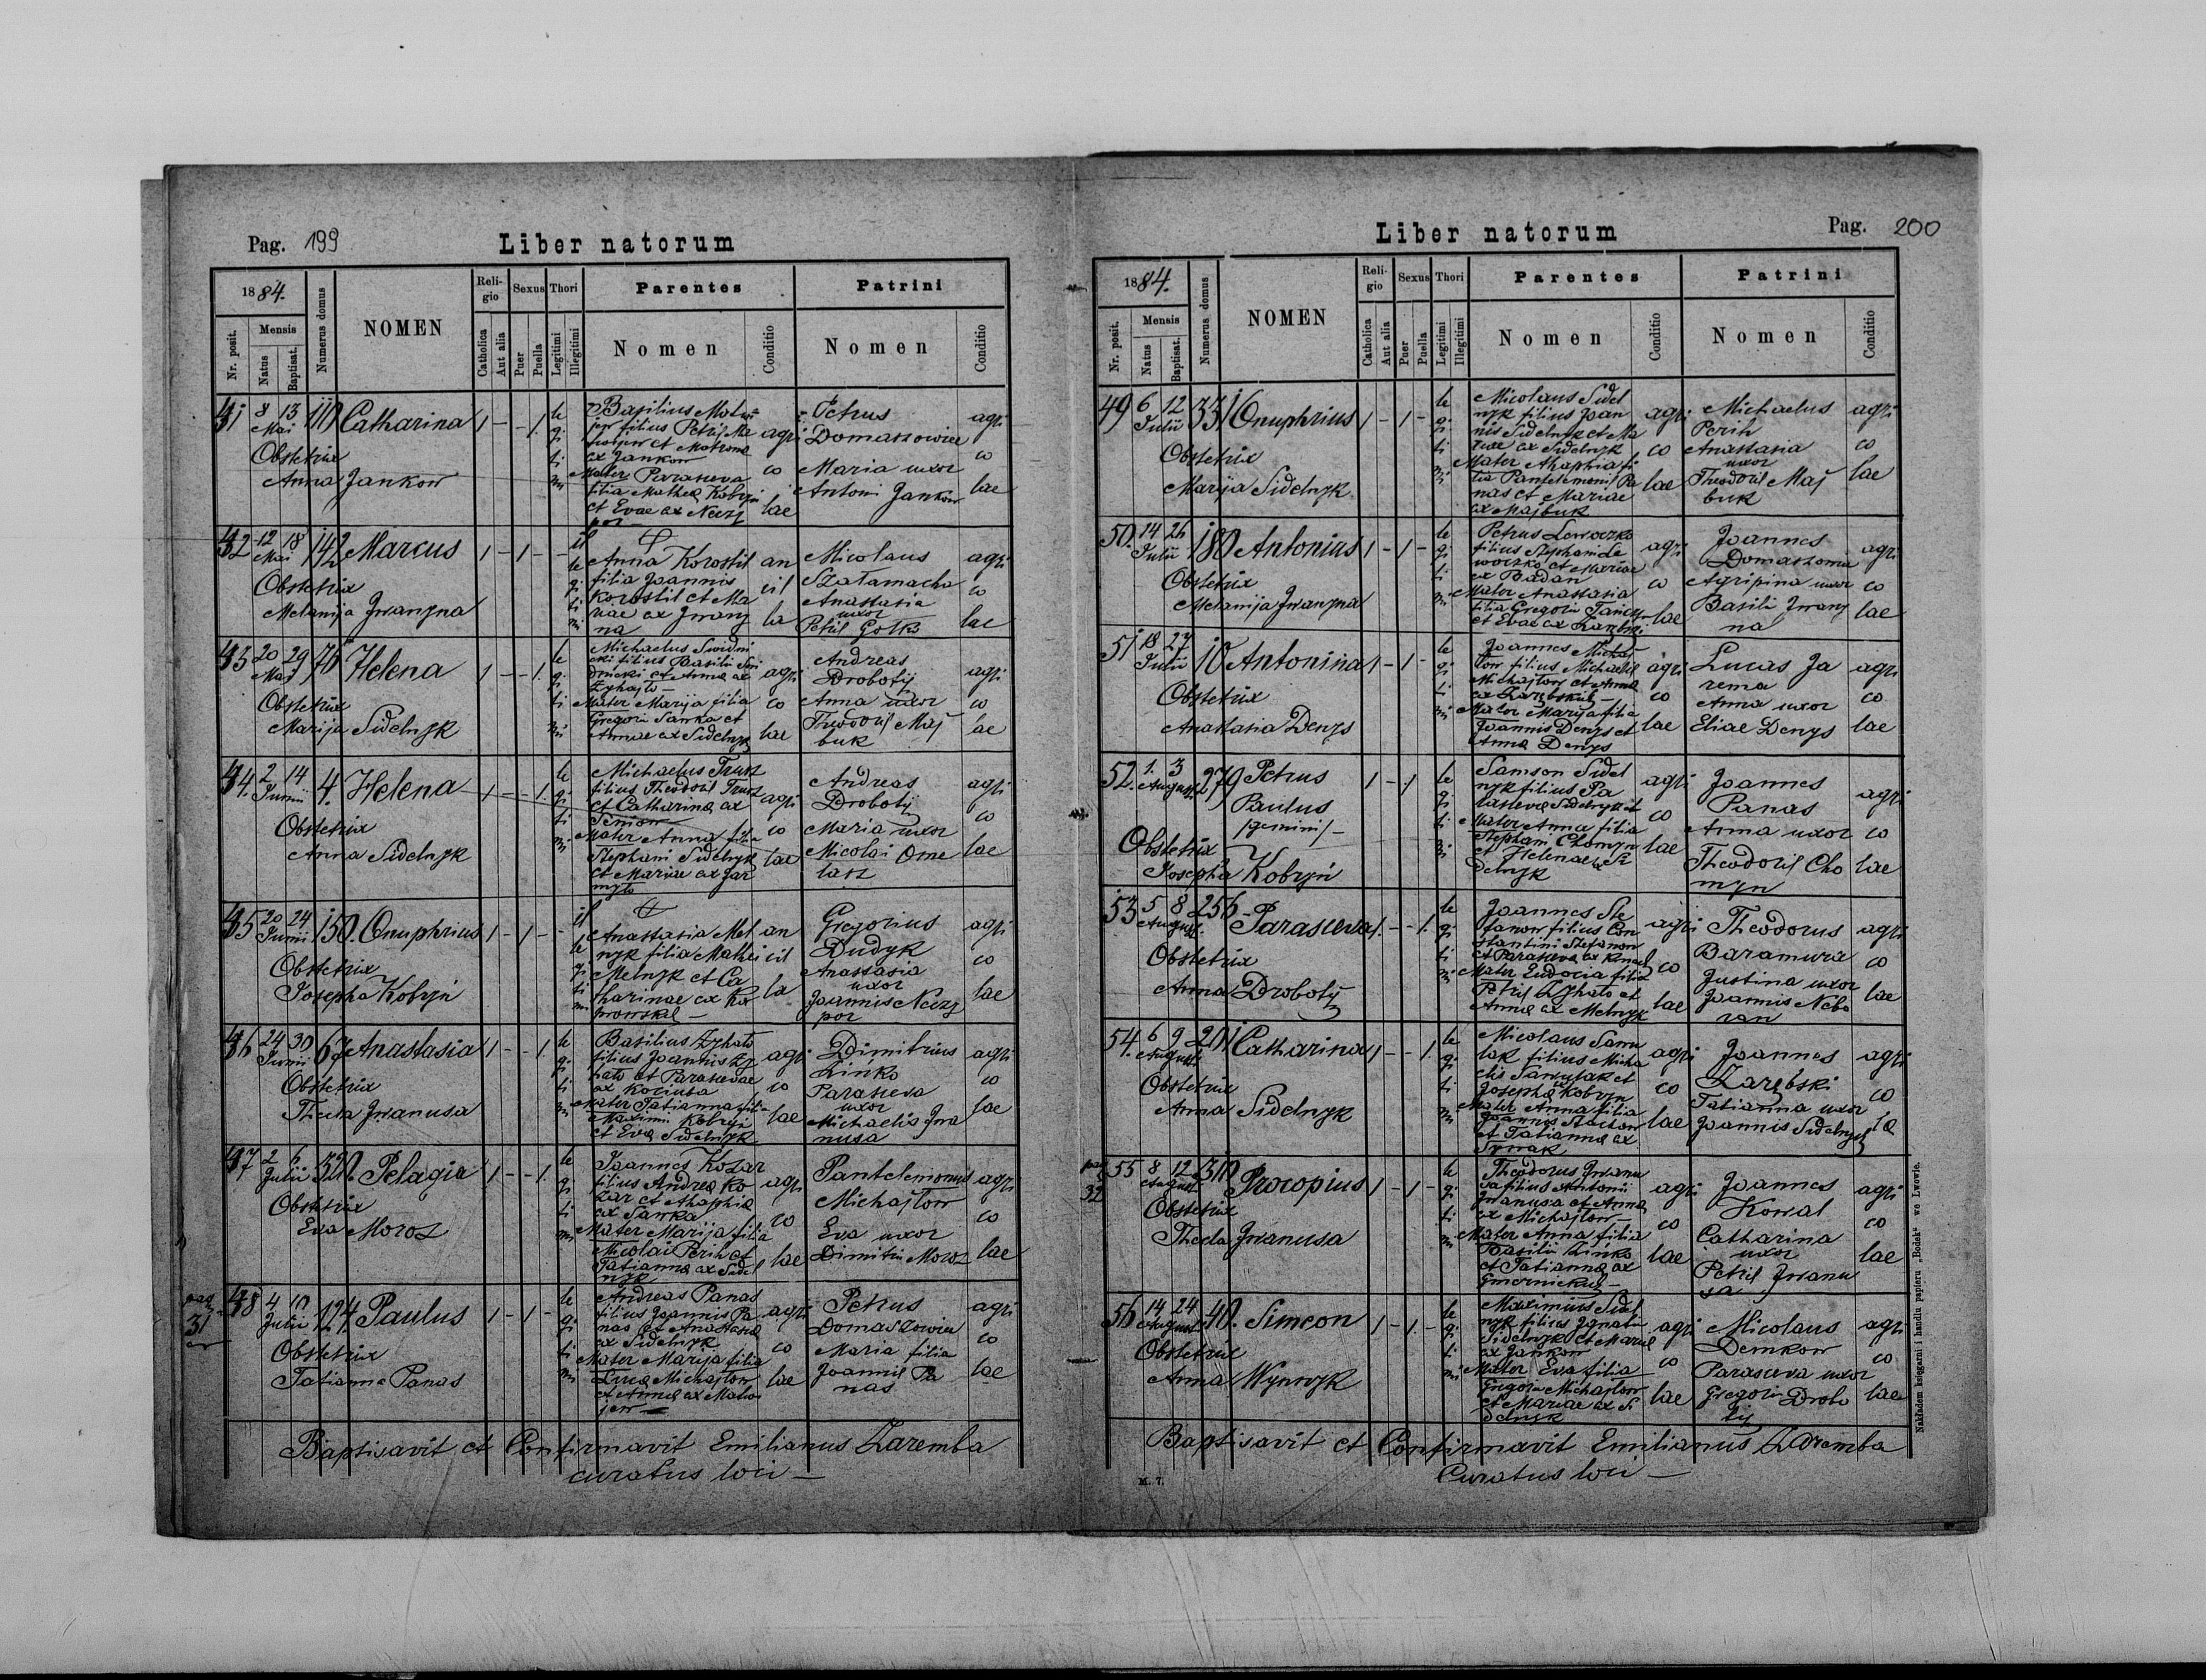 Pag. 199
Liber natorum
1884.
Nr. posit.
Mensis
Natus
Baptisat.
Numerus domus
NOMEN
Religio
Catholica
Aut alia
Sexus
Puer
Puella
Thori
Legitimi
Illegitimi
Parentes
Nomen
Conditio
Patrini
Nomen
Conditio
41 8 13 Mai 110 Catharina 1 - - 1.
Obstetrix
Anna Jankow
legitimi
Basilius
filius Petri
et Matrona
ex Jankow
Mater Parasceva
filia Mathei Kobryn
et Evae ex Neczy
por
agricolae
Petrus
Domaszowicz
Maria uxor
Antoni Jankow
agricolae
42 12 18 Mai 142 Marcus 1 - 1 -
Obstetrix
Melanija Iwanyna
illegitimi
Anna Korostil
filia Joannis
Korostil et Ma
riae ex Iwany
na
ancilla
Micolaus
Szatamacha
Anastasia
uxor
Petril Gotko
agricolae
43 20 29 Mai 76 Helena 1 - - 1.
Obstetrix
Marija Sidelnyk
legitimi
Michaelus Swidni
cki filius Basilii Swi
dnicki et Anna ex
Zyhajlo
Mater Marija filia
Gregorii Sanka et
Annae ex Sidelnyk
agricolae
Andreas
Drobotij
Anna uxor
Theodoril Maj
buk
agricolae
44. 2 14 Junii 4. Helena 1 - - 1.
Obstetrix
Anna Sidelnyk
legitimi
Michaelus Trusz
filius Theodoril Trusz
et Catharina ex
Seniow
Mater Anna filia
Stephani Sidelnyk
et Mariae ex Jar
myło
agricolae
Andreas
Drobotij
Maria uxor
Micolai Ome
lasz
agricolae
45 20 24 Junii 150. Onuphrius 1 - 1 -
Obstetrix
Josepha Kobryn
illegitimi
Anastasia Mel
nyk filia Mathei
Melnyk et Ca
tharinae ex Ko
ancilla
Gregorius
Dudyk
Anastasia
uxor
Joannis Neczy
por
agricolae
46 24 30 Junii 67 Anastasia 1 - - 1.
Obstetrix
Thecla Iwanusa
legitimi
Basilius Zyhato
filius Joannis Zy
hato et Parascevae
ex Kociuba
Mater Tatianna filia
Maximi Kobryn
et Eva Sidelnyk
agricolae
Dimitrius
Zinko
Parasceva
uxor
Michaelis Iwa
nusa
agricolae
47 2 6 Julii Pelagia 1 - - 1.
Obstetrix
Eva Moroz
legitimi
Joannes Kozar
filius Andrea Ko
zar et Ahaphia
ex Sanka
Mater Marija filia
Micolail Perih et
Tatianna ex Sidel
nyk
agricolae
Pantelemonus
Michajlow
Eva uxor
Dimitrii Moroz
agricolae
pag 31
48 4 10 Julii 124 Paulus 1 - 1 -
Obstetrix
Tatianna Panas
legitimi
Andreas Panas
filius Joannis Pa
nas et Anastasia
ex Sidelnyk
Mater Marija filia
Luca Michajlow
et Anna ex Matwi
jew
agricolae
Petrus
Domaszowicz
Maria filia
Joannil Pa
nas
agricolae
Baptisavit et Confirmavit Emilianus Zaremba
curatus loci
Liber natorum
Pag. 200
1884.
Nr. posit.
Mensis
Natus
Baptisat.
Numerus domus
NOMEN
Religio
Catholica
Aut alia
Sexus
Puer
Puella
Thori
Legitimi
Illegitimi
Parentes
Nomen
Conditio
Patrini
Nomen
Conditio
49 6 12 Julii 331 Onuphrius 1 - 1 -
Obstetrix
Marija Sidelnyk
legitimi
Micolaus Sidel
nyk filius Joan
nis Sidelnyk et Ma
riae ex Sidelnyk
Mater Ahaphia fi
lia Pantelemonis Pa
nas et Mariae
ex Majbuk
agricolae
Michaelus
Perih
Anastasia
uxor
Theodoril Maj
buk
agricolae
50. 14 26 Julii 180 Antonius 1 - 1 -
Obstetrix
Melanija Iwanyna
legitimi
Petrus Lewoczko
filius Stephani Le
woczko et Mariae
ex Badan
Mater Anastasia
filia Gregorii
et Evae ex
agricolae
Joannes
Agripina uxor
Basili Iwany
na
agricolae
51 18 27 Julii 10 Antonina 1 - 1 -
Obstetrix
Anastasia Denys
legitimi
Joannes Michaj
low filius Michaelil
Michajlow et Anna
Mater Marija filia
Joannis Denys et
Anna Denys
agricolae
Lucas Ja
rema
Anna uxor
Eliae Denys
agricolae
52. 1. 3 Augusti 279 Petrus 1 - 1
Paulus
/gemini/
Obstetrix
Josepha Kobryn
legitimi
Samson Sidel
nyk filius Pa
Sidelnyk et
Mater Anna filia
Stephani Chomyn
et Helenae Si
delnyk
agricolae
Joannes
Panas
Anna uxor
Theodoril Cho
myn
agricolae
53 5 8 August. 256 Parasceva 1. - - 1.
Obstetrix
Anna Drobotij
legitimi
Joannes Ste
fanow filius Con
stantini Stefanow
et Parasceva ex
Mater Eudocia filia
Petril Zyhato et
Anna ex Melnyk
agricolae
Theodorus
Baramura
Justina uxor
Joannis Nebo
ran
agricolae
54. 6 9 Augusti 201 Catharina 1 - - 1.
Obstetrix
Anna Sidelnyk
legitimi
Micolaus Samu
lak filius Micha
elis Samulak et
Josepha Kobryn
Mater Anna filia
Joannis
et Tatianna ex
agricolae
Joannes
Zarębski
Tatianna uxor
Joannis Sidelnyk
agricolae
pag 32
55 8 12 August 310 Procopius 1 - 1 -
Obstetrix
Thecla Iwanusa
legitimi
Theodorus Iwanu
sa filius Antonii
Iwanusa et Anna
ex Michajlow
Mater Anna filia
Basilii Zinko
et Tatianna ex
agricolae
Joannes
Kowal
Catharina
uxor
Petril Iwanu
sa
agricolae
56 14 24 August 40. Simeon 1 - 1. -
Obstetrix
Anna Wynnyk
legitimi
Maximius Sidel
nyk filius Ignatii
Sidelnyk et Maria
ex Jankow
Mater Eva filia
Gregorii Michajlow
et Mariae ex Si
delnyk
agricolae
Micolaus
Demkow
Parasceva uxor
Gregorii Drobo
tij
agricolae
Baptisavit et Confirmavit Emilianus Zaremba
Curatus loci
M. 7.
Nakładem księgarni i handlu papieru „Bodek“ we Lwowie.